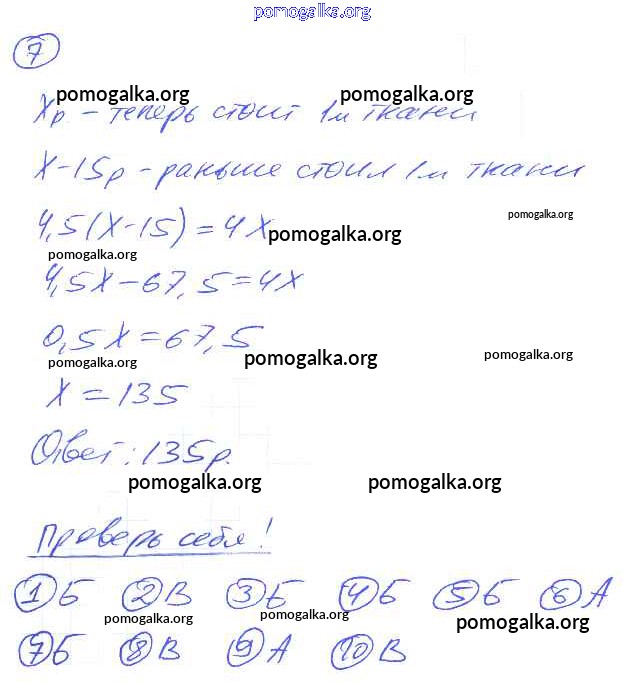 pomogalka.org
7
pomogalka.org pomogalka.org
Xр – теперь стоит 1м ткани
X-15р – раньше стоил 1м ткани
pomogalka.org
4,5(X-15)=4X
pomogalka.org
pomogalka.org
4,5X-67,5=4X
0,5X=67,5
pomogalka.org pomogalka.org pomogalka.org
X=135
Ответ: 135р.
pomogalka.org pomogalka.org
Проверь себя!
1 Б 2 В 3 Б 4 Б 5 Б 6 А
pomogalka.org pomogalka.org pomogalka.org
7 Б 8 В 9 А 10 В